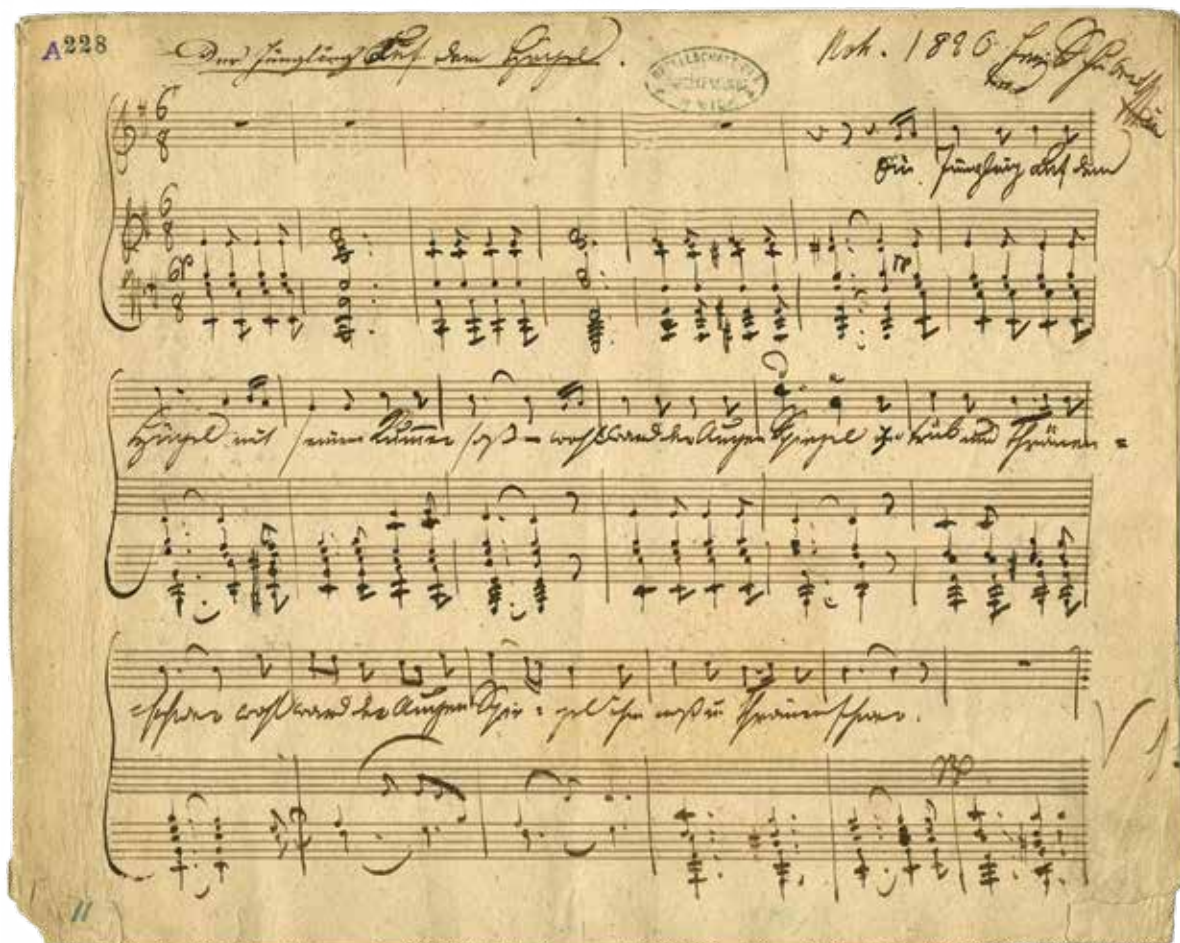 A228
Der Jüngling auf dem Hügel.
Nov. 1820 Franz Schubert
GESELLSCHAFT DER
IN WIEN
Ein Jüngling auf dem
Hügel mit seinem Kummer saß – wohl ward der Augen Spiegel ihm trüb und thränen=
=schwer wohl ward der Augen Spie = gel ihm thränenschwer.
11